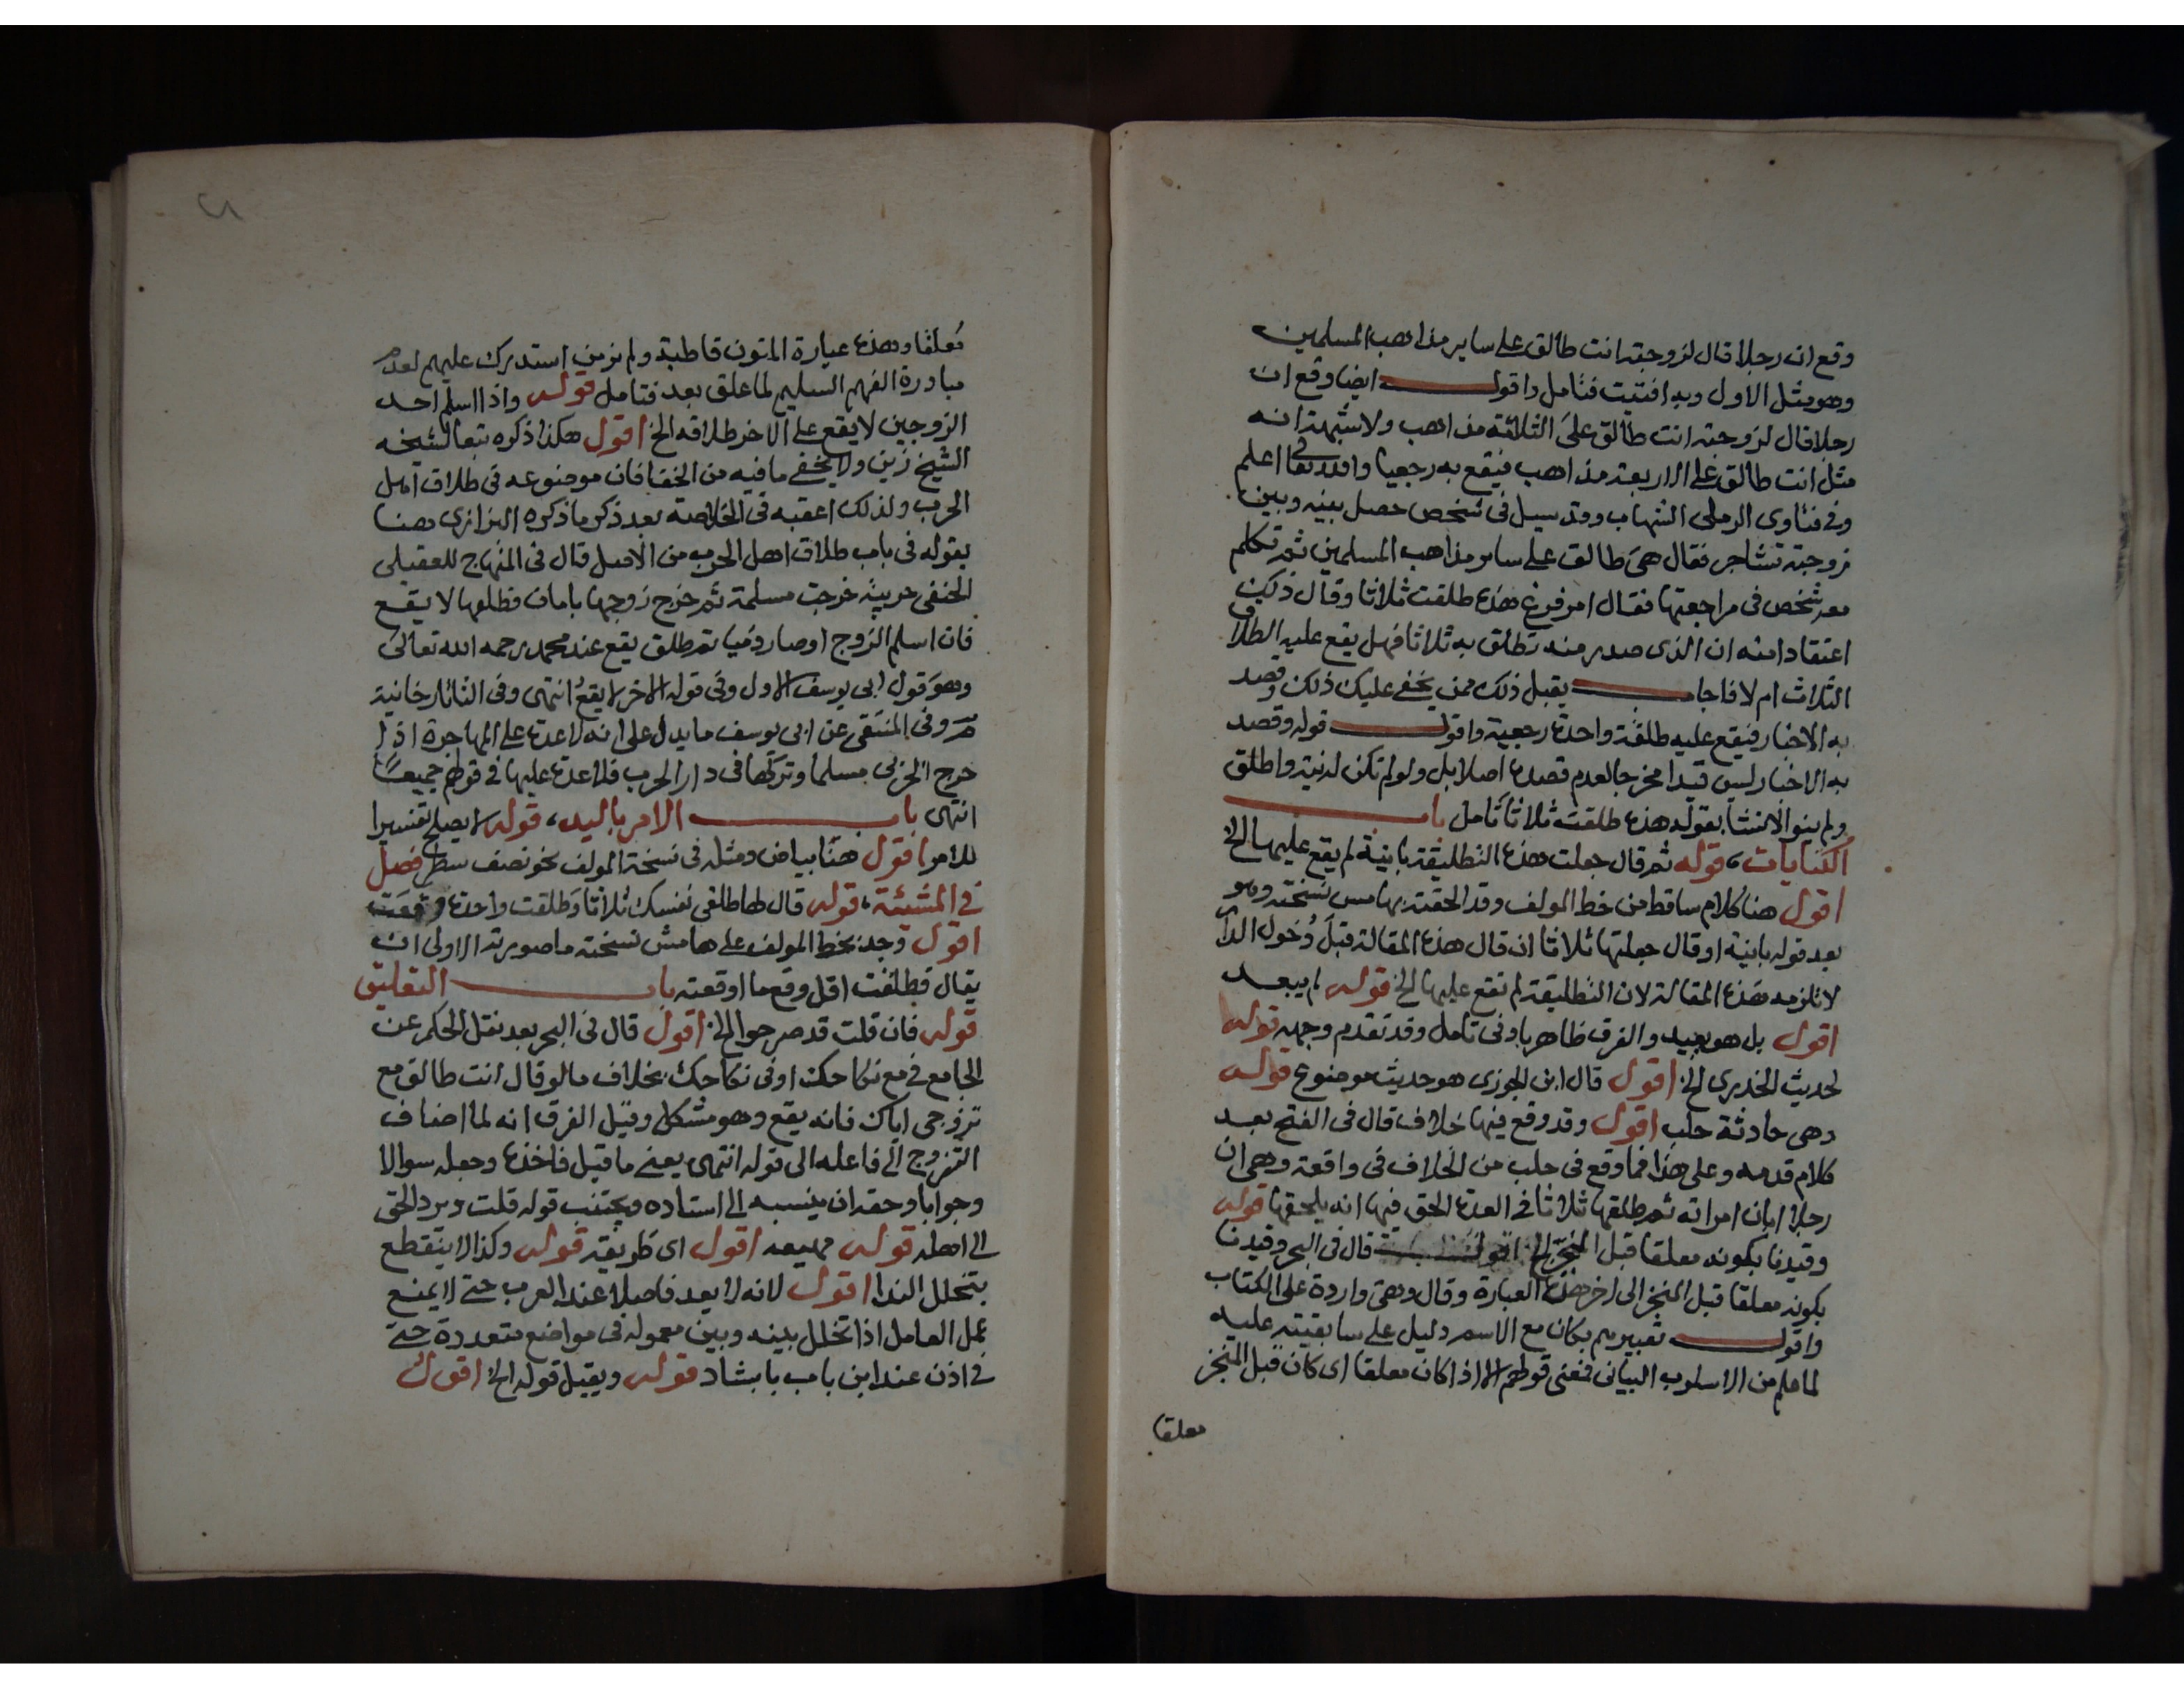 وقع ان رجلا قال لزوجته انت طالق على ساير مذاهب المسلمين
وهو مثل الاول وبه افتيت فتامل واقول ايضا وقع ان
رجلا قال لزوجته انت طالق على الثلاثة مذاهب ولا شبهة انه
مثل انت طالق على الاربعة مذاهب فيقع به رجعيا والله تعالى اعلم
وفي فتاوى الرملي الشهاب وقد سيل في شخص حصل بينه وبين
زوجته تشاجر فقال هي طالق على ساير مذاهب المسلمين ثم تكلم
معه شخص في مراجعتها فقال امر فرغ هذه طلقت ثلاثا وقال ذلك
اعتقادا منه ان الذي صدر منه تطلق به ثلاثا فهل يقع عليه الطلاق
الثلاث ام لا فاجاب يقبل ذلك ممن يخفى عليك ذلك وقصد
به الاخبار فيقع عليه طلقة واحدة رجعية واقول قوله وقصد
به الاخبار ليس قيدا مخرجا لعدم قصده اصلا بل ولو لم تكن له نية واطلق
ولم ينو الانشا بقوله هذه طلقت ثلاثا تامل باب
الكنايات، قوله ثم قال جعلت هذه التطليقة باينة لم يقع عليها الخ
اقول هنا كلام ساقط من خط المولف وقد الحقته بهامش نسخته وهو
بعد قوله باينة او قال جعلتها ثلاثا ان قال هذه المقالة قبل دخول الدا
لا تلزمه هذه المقالة لان التطليقة لم تقع عليها الخ قوله لم يبعد
اقول بل هو بعيد والفرق ظاهر بادنى تامل وقد تقدم وجهه قوله
لحديث الخدري الخ اقول قال ابن الجوزي هو حديث موضوع قوله
وهي حادثة حلب اقول وقد وقع فيها خلاف قال في الفتح بعد
كلام قدمه وعلى هذا فما وقع في حلب من الخلاف في واقعة وهي ان
رجلا ابان امراته ثم طلقها ثلاثا في العدة الحق فيها انه يلحقها قوله
وقيدنا بكونه معلقا قبل المنجز الخ اقول قال في البحر وقيدنا
بكونه معلقا قبل المنجز الى اخر هذه العبارة وقال وهي واردة على الكتاب
واقول تعبيرهم بكان مع الاسم دليل على سابقيته عليه
لما علم من الاسلوب البياني فمعنى قولهم الا اذا كان معلقا اى كان قبل المنجز
معلقا
معلقا وهذه عبارة المتون قاطبة ولم نر من استدرك عليهم لعدم
مبادرة الفهم السليم لما علق بعد فتامل قوله واذا اسلم احد
الزوجين لا يقع على الاخر طلاقه الخ اقول هكذا ذكره تبعا لشيخه
الشيخ زين ولا يخفى ما فيه من الخفا فان موضوعه في طلاق اهل
الحرب ولذلك اعقبه في الخلاصة بعد ذكر ما ذكره البزازى هنا
بقوله في باب طلاق اهل الحرب من الاصل قال في المنهاج للعقيلي
الحنفي حربية خرجت مسلمة ثم خرج زوجها بامان فطلقها لا يقع
فان اسلم الزوج او صار ذميا ثم طلق يقع عند محمد رحمه الله تعالى
وهو قول ابي يوسف الاول وفي قوله الاخر لا يقع انتهى وفي التاتارخانية
وفي المنتقى عن ابي يوسف ما يدل على انه لا عدة على المهاجرة اذا
خرج الحربي مسلما وتركها في دار الحرب فلا عدة عليها في قولهم جميعا
انتهى باب الامر باليد، قوله لا يصلح تفسيرا
للامر اقول هنا بياض ومثله في نسخة المولف نحو نصف سطر فصل
في المشيئة، قوله قال لها طلقي نفسك ثلاثا وطلقت واحدة وقعت
اقول وجد بخط المولف على هامش نسخته ما صورته الاولى ان
يقال فطلقت اقل وقع ما اوقعته باب التعليق
قوله فان قلت قد صرحوا الخ اقول قال في البحر بعد نقل الحكم عن
الجامع في مع نكاحك او في نكاحك بخلاف ما لو قال انت طالق مع
تزوجي اياك فانه يقع وهو مشكل وقيل الفرق انه لما اضاف
التزوج الى فاعله الى قوله انتهى يعني ما قيل فاخذه وجعله سوالا
وجوابا وحقه ان ينسبه الى استاده ويجتنب قوله قلت ويرد الحق
الى اهله قوله مهيعه اقول اى طريقه قوله وكذا لا ينقطع
بتخلل الندا اقول لانه لا يعد فاصلا عند العرب حتى لا يمنع
عمل العامل اذا تخلل بينه وبين معموله في مواضع متعددة حتى
في اذن عند ابن باب بابشاد قوله ويقبل قوله الخ اقول